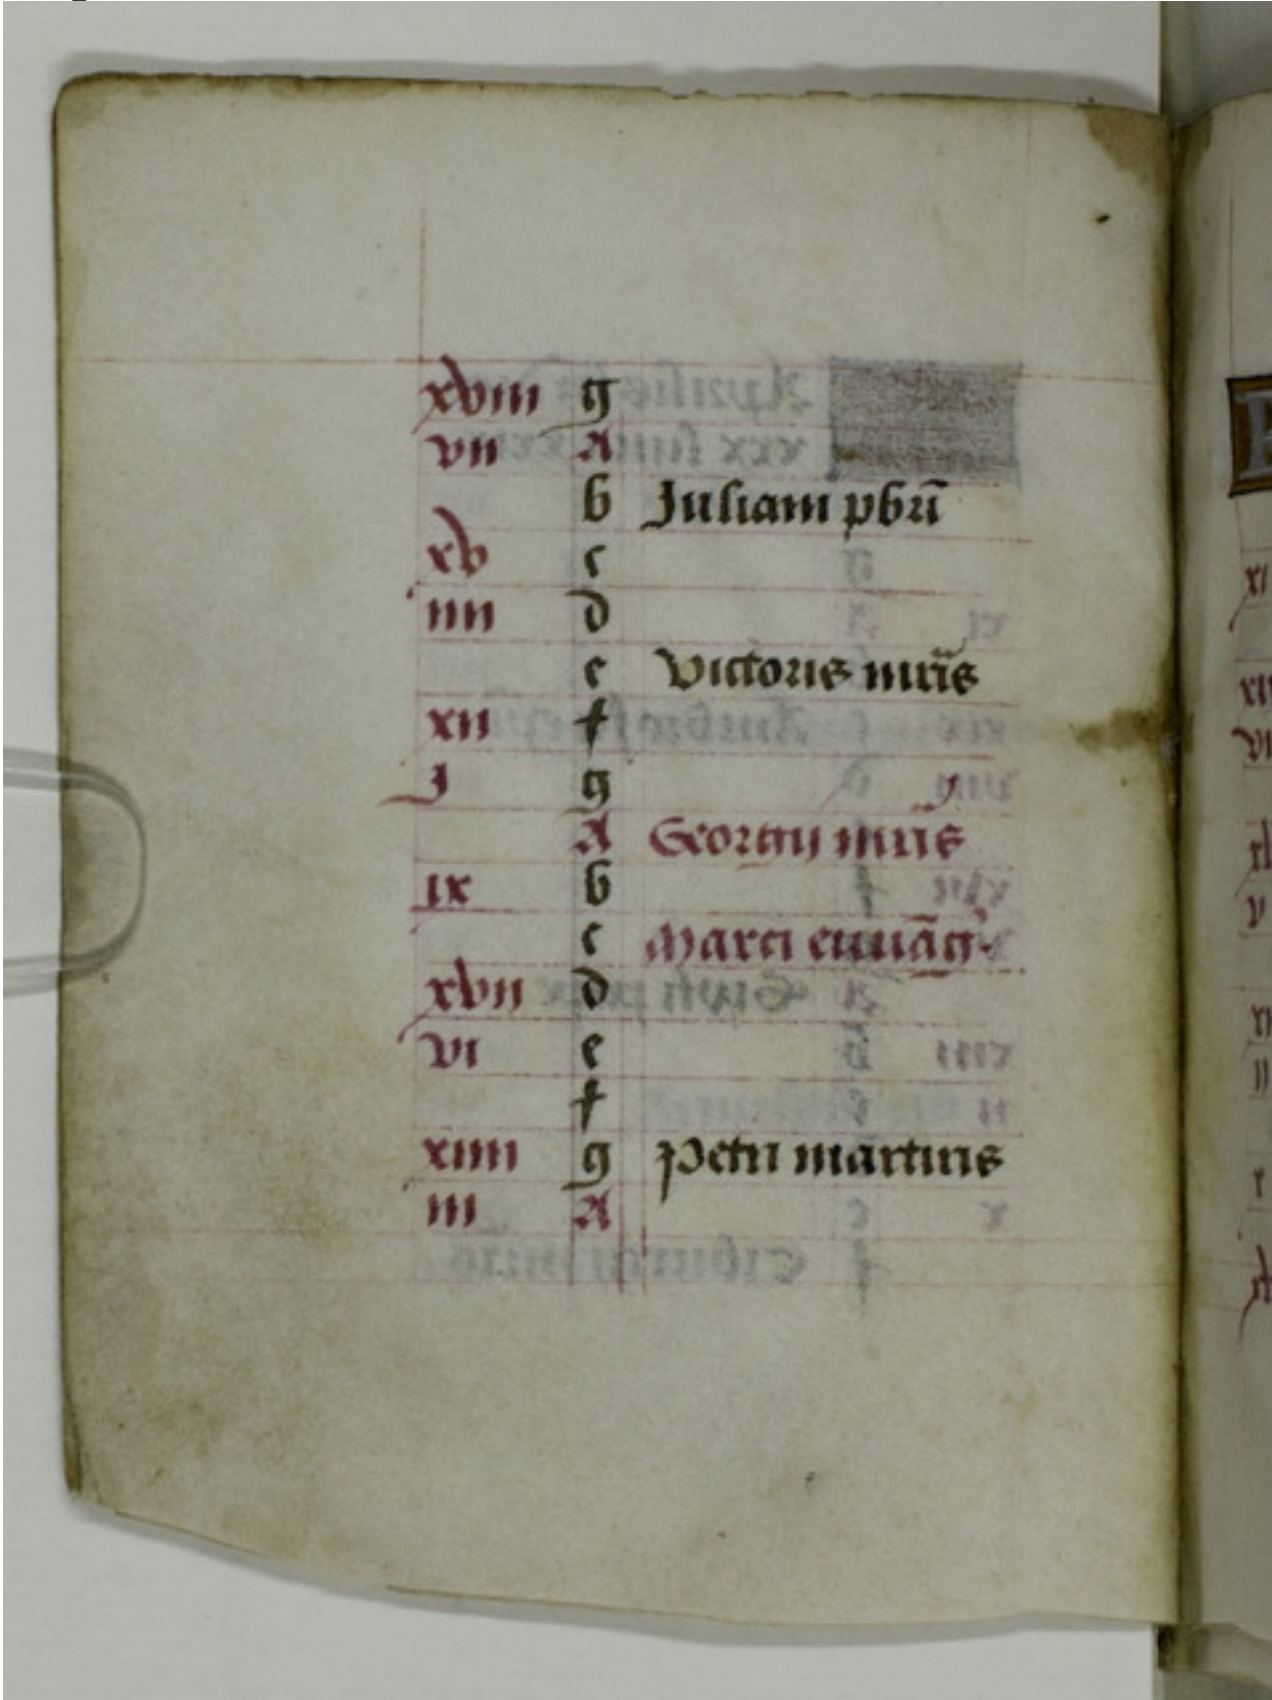 xviii g
vii A
b Juliani pbri
xv c
iiii d
e Victoris mris
xii f
j g
A Georgii mris
ix b
c Marci euuāg
xvii d
vi e
f
xiiii g Petri martiris
iii A